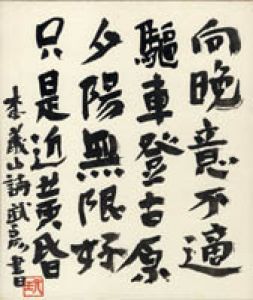 向晚意不適
驅車登古原
夕陽無限好
只是近黃昏
李義山詩 武 書